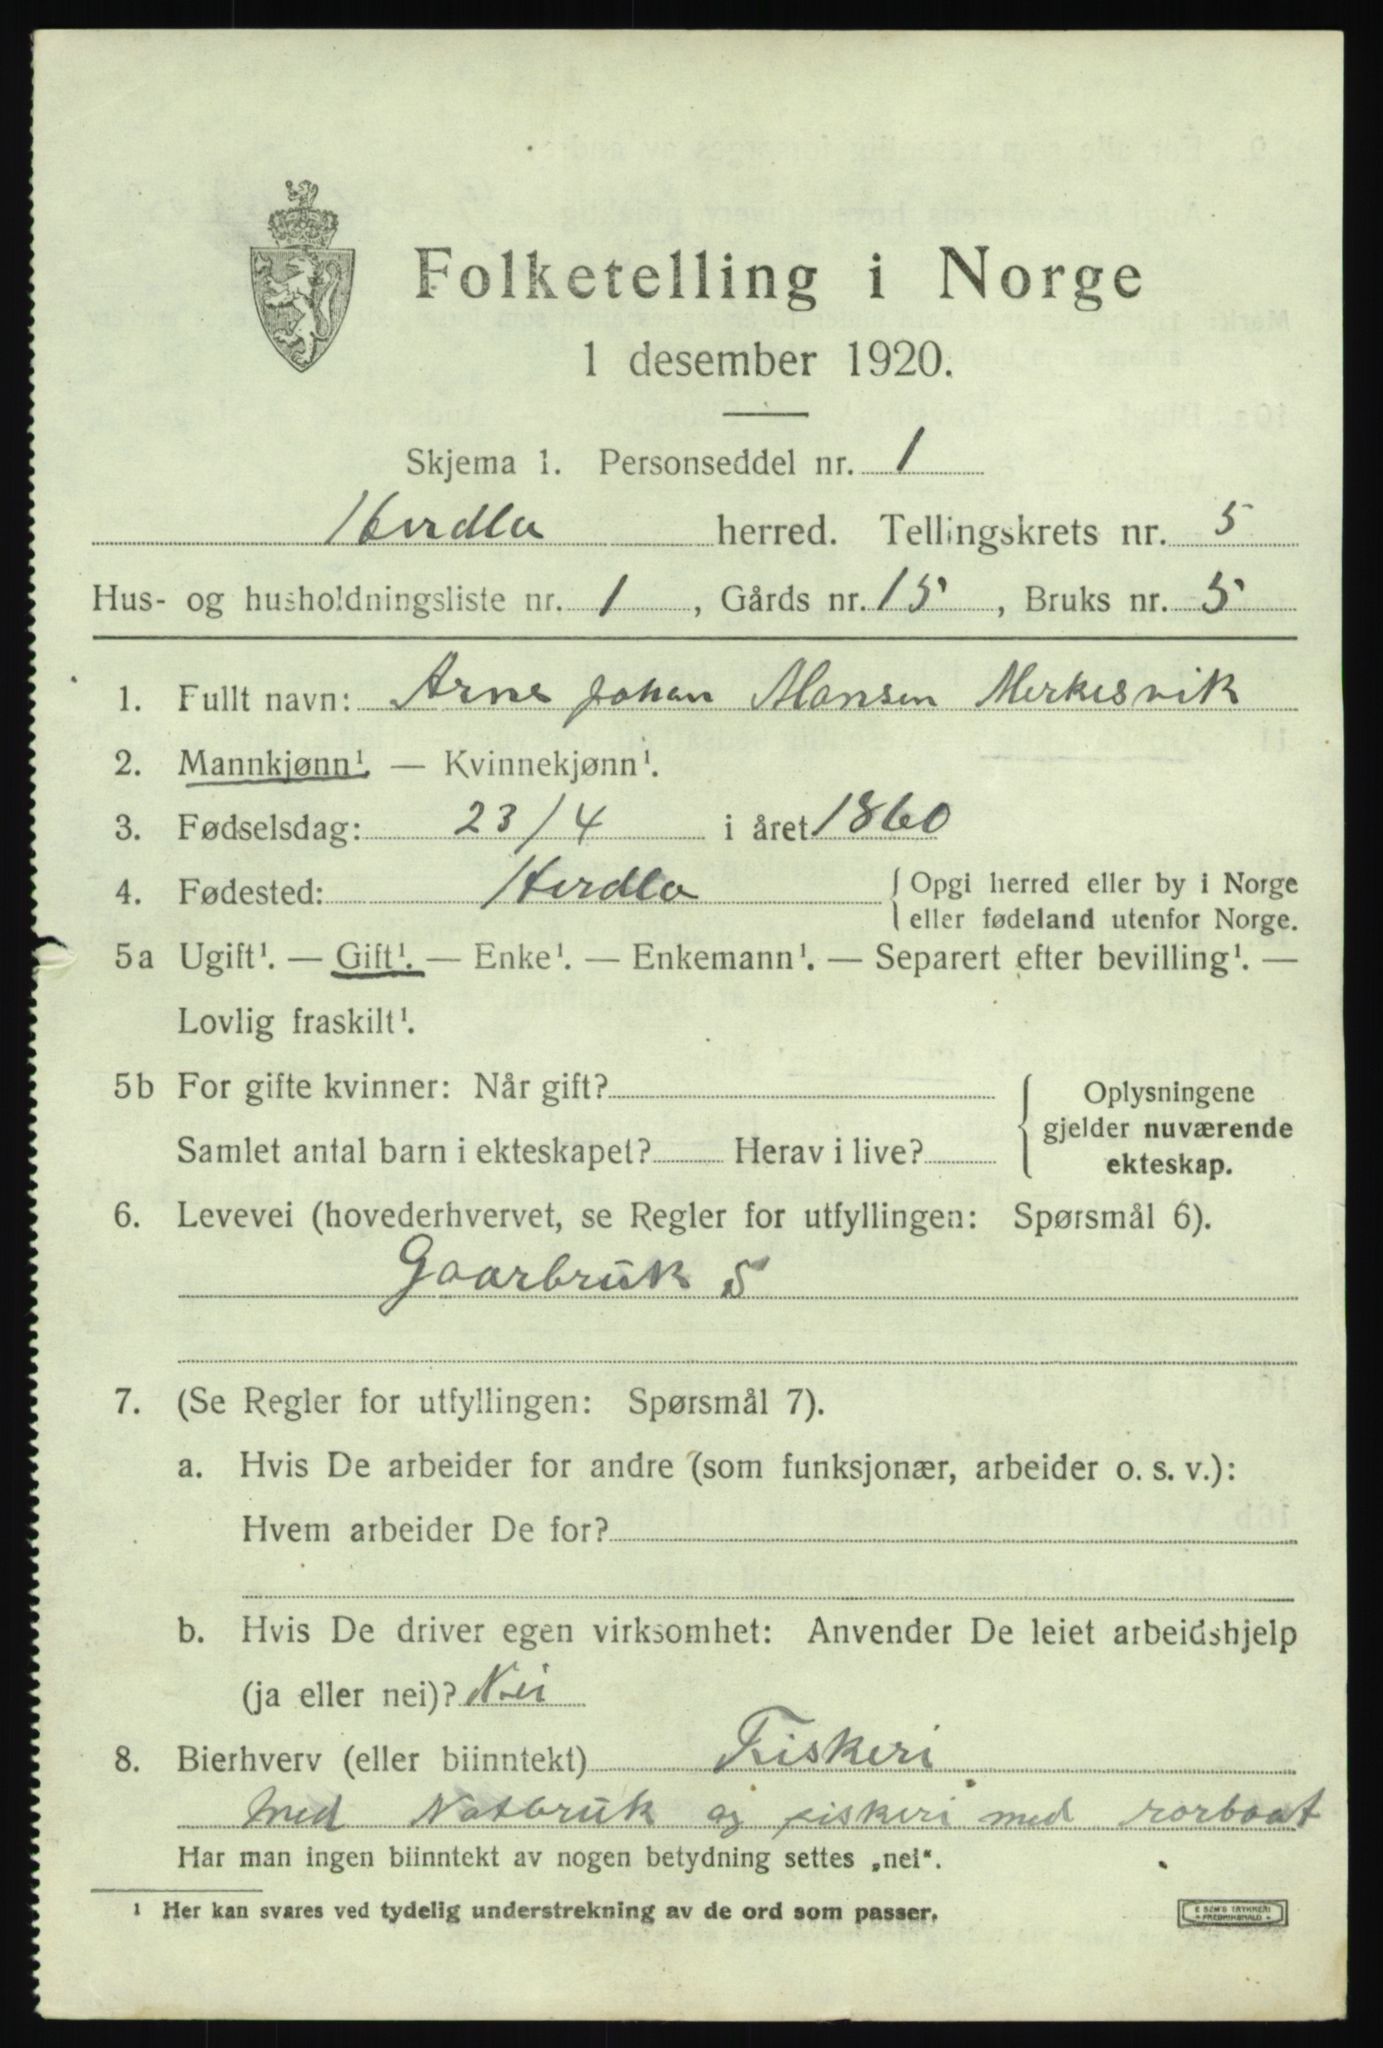 Folketelling i Norge
1 desember 1920.
Skjema 1. Personseddel nr. 1
Herdla herred. Tellingskrets nr. 5
Hus- og husholdningsliste nr. 1, Gårds nr. 15, Bruks nr. 5
1. Fullt navn: Arne Johan Monsen Merkesvik
2. Mannkjønn¹. — Kvinnekjønn¹.
3. Fødselsdag: 23/4 i året 1860
4. Fødested: Herdla { Opgi herred eller by i Norge
eller fødeland utenfor Norge.
5a Ugift¹. — Gift¹. — Enke¹. — Enkemann¹. — Separert efter bevilling¹. —
Lovlig fraskilt¹.
5b For gifte kvinner: Når gift?
Samlet antal barn i ekteskapet? Herav i live?
Oplysningene
gjelder nuværende
ekteskap.
6. Levevei (hovederhvervet, se Regler for utfyllingen: Spørsmål 6).
Gaarbruk S
7. (Se Regler for utfyllingen: Spørsmål 7).
a. Hvis De arbeider for andre (som funksjonær, arbeider o. s. v.):
Hvem arbeider De for?
b. Hvis De driver egen virksomhet: Anvender De leiet arbeidshjelp
(ja eller nei)? Nei
8. Bierhverv (eller biinntekt) Fiskeri
med Notbruk og fiskeri med rorbaat
Har man ingen biinntekt av nogen betydning settes „nei“.
¹ Her kan svares ved tydelig understrekning av de ord som passer.
E SEM'S TRYKKERI
FREDRIKSHALD